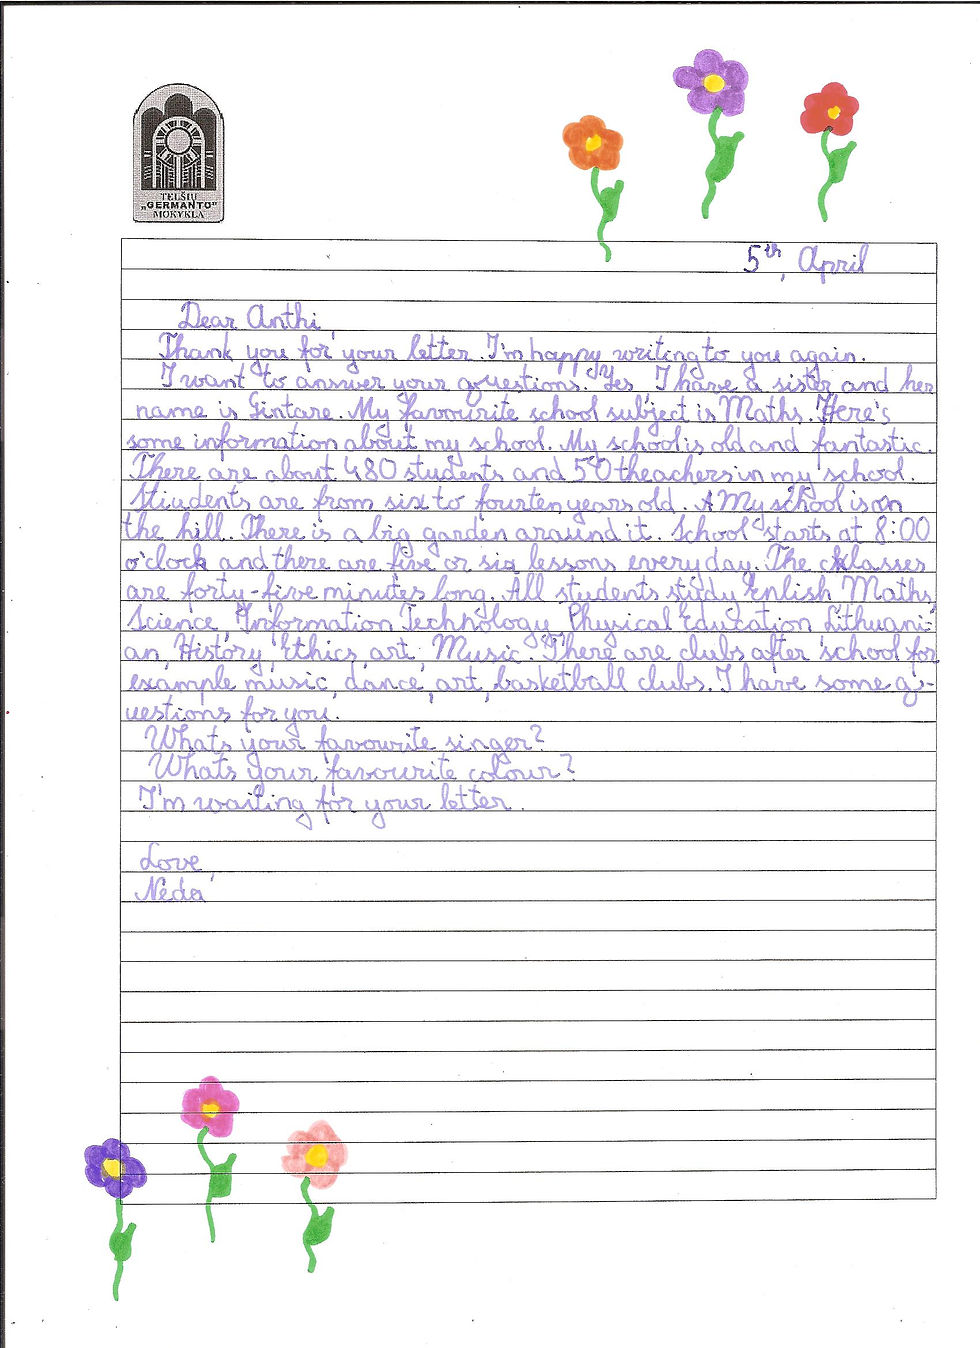 TELŠIŲ
„GERMANTO"
MOKYKLA
5th, April
Dear Anthi,
Thank you for your letter. I'm happy writing to you again.
I want to answer your questions. Yes, I have a sister and her
name is Gintare. My favourite school subject is Maths. Here's
some information about my school. My school is old and fantastic.
There are about 480 students and 50 theachers in my school.
Students are from six to fourten years old. My school is on
the hill. There is a big garden araund it. School starts at 8:00
o'clock and there are five or six lessons everyday. The classes
are forty-five minutes long. All students study Enlish, Maths,
Science, Information Technology, Physical Education, Lithuani-
an, History, Ethics, art, Music. There are clubs after school for
example music, dance, art, basketball clubs. I have some q-
uestions for you.
Whats your favourite singer?
Whats your favourite colour?
I'm waiting for your letter.
Love,
Neda